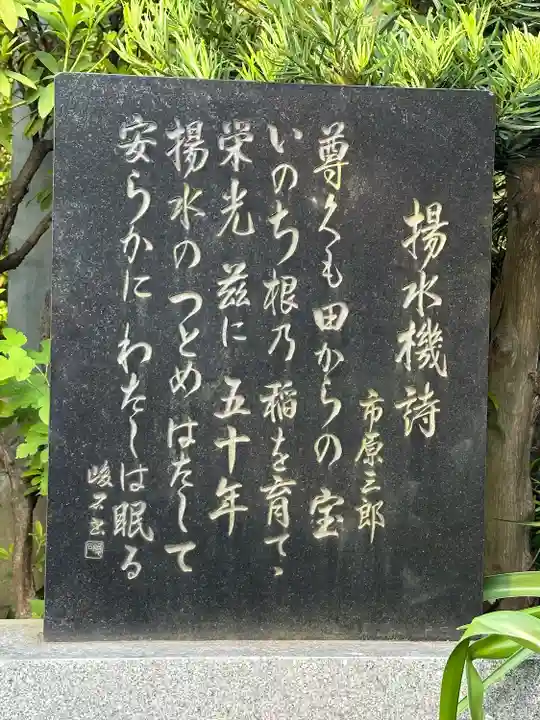 揚水機詩
市原三郎
尊くも田からの宝
いのち根乃稲を育てゝ
栄光 茲に 五十年
揚水のつとめはたして
安らかに わたしは眠る